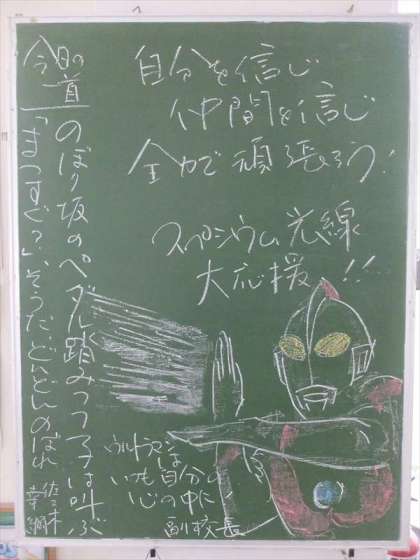 今日の
一首
のぼり坂のペダル踏みつつ子は叫ぶ
「まっすぐ?」、そうだ、どんどんのぼれ
佐々木
幸綱
自分を信じ
仲間を信じ
全力で頑張ろう!
スペシウム光線
大応援!!
ウルトラマンは
いつも自分の
心の中に!
副校長